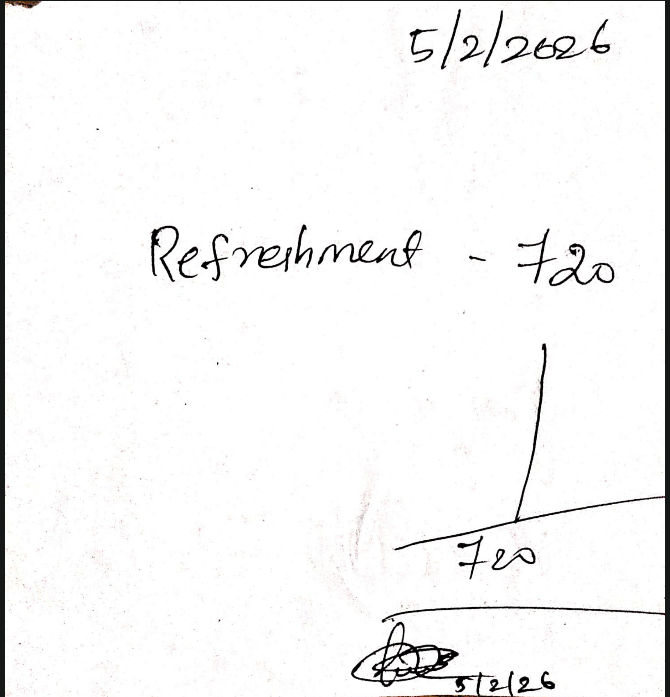 5/2/2026
Refreshment - 720
720
5/2/26